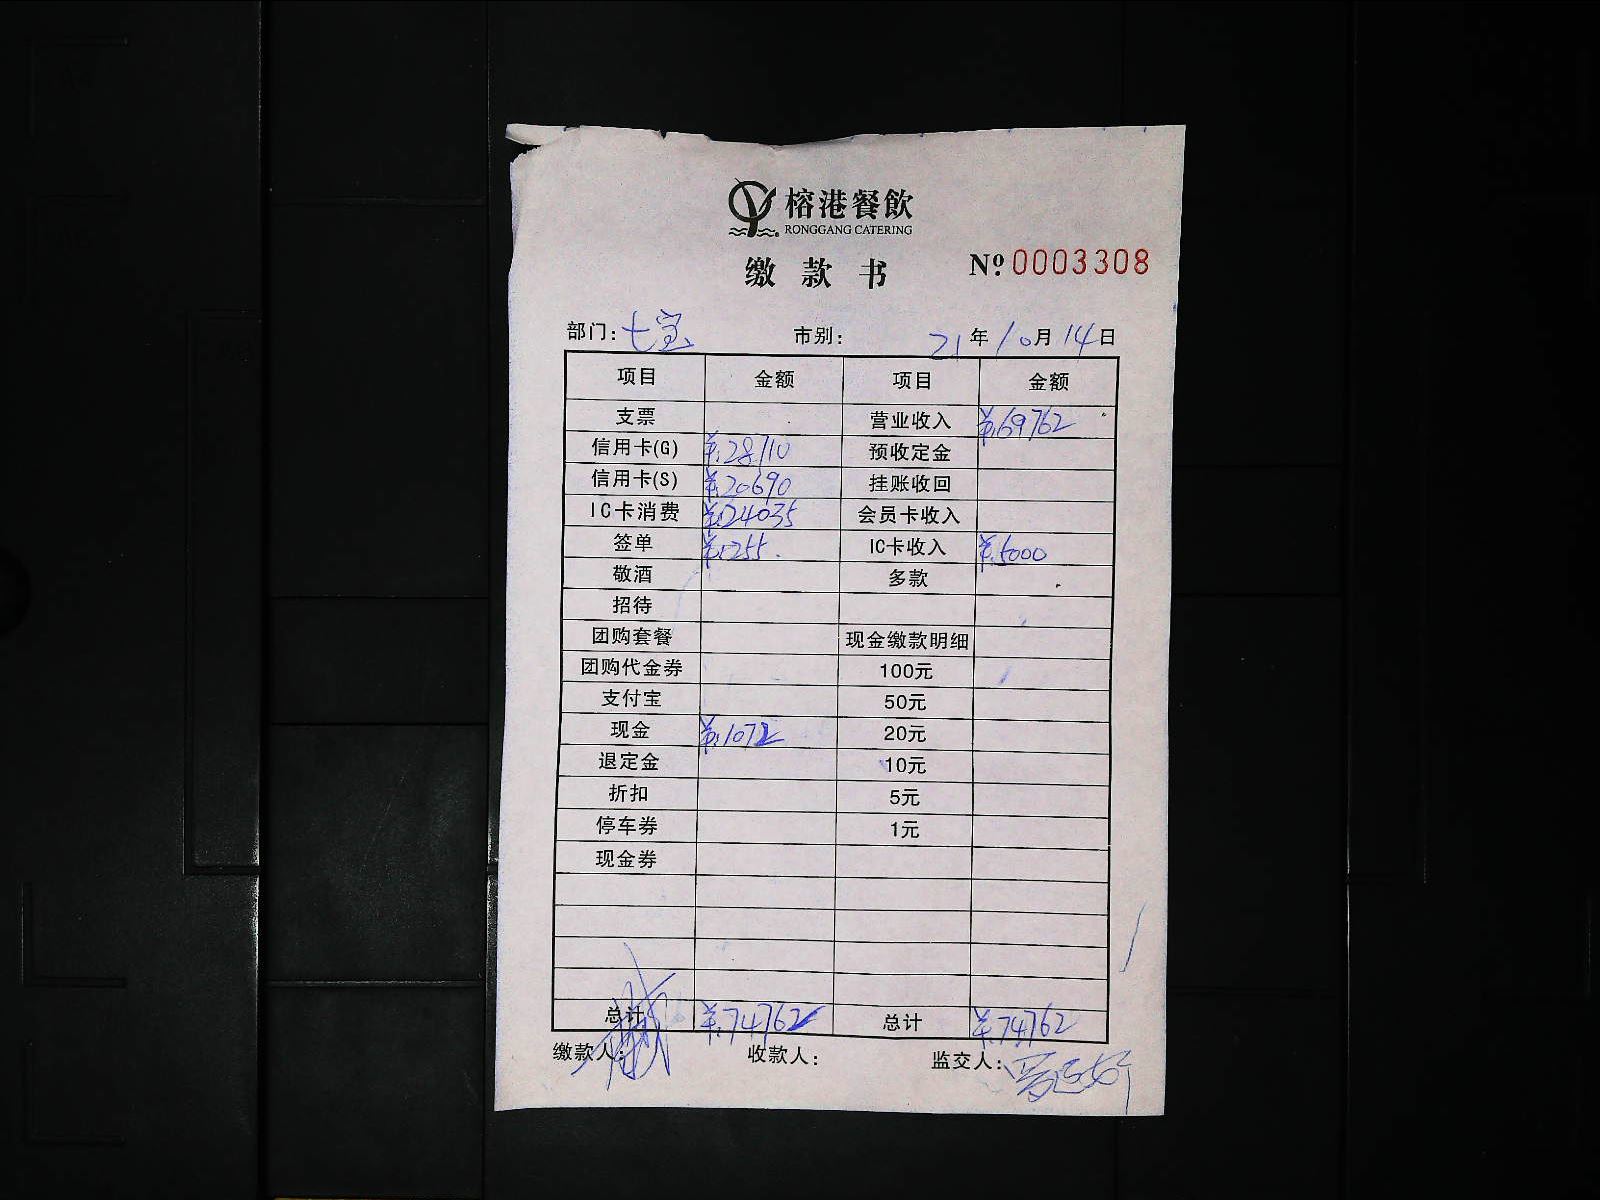 榕港餐飲
RONGGANG CATERING
缴款书 № 0003308
部门: 七宝 市别: 21年10月14日
项目 金额 项目 金额
支票 营业收入 ¥:69762
信用卡(G) ¥:28710 预收定金
信用卡(S) ¥:20690 挂账收回
IC卡消费 ¥:24035 会员卡收入
签单 ¥:255. IC卡收入 ¥:5000
敬酒 多款
招待
团购套餐 现金缴款明细
团购代金券 100元
支付宝 50元
现金 ¥:1072 20元
退定金 10元
折扣 5元
停车券 1元
现金券
总计 ¥:74762 总计 ¥:74762
缴款人: 收款人: 监交人: